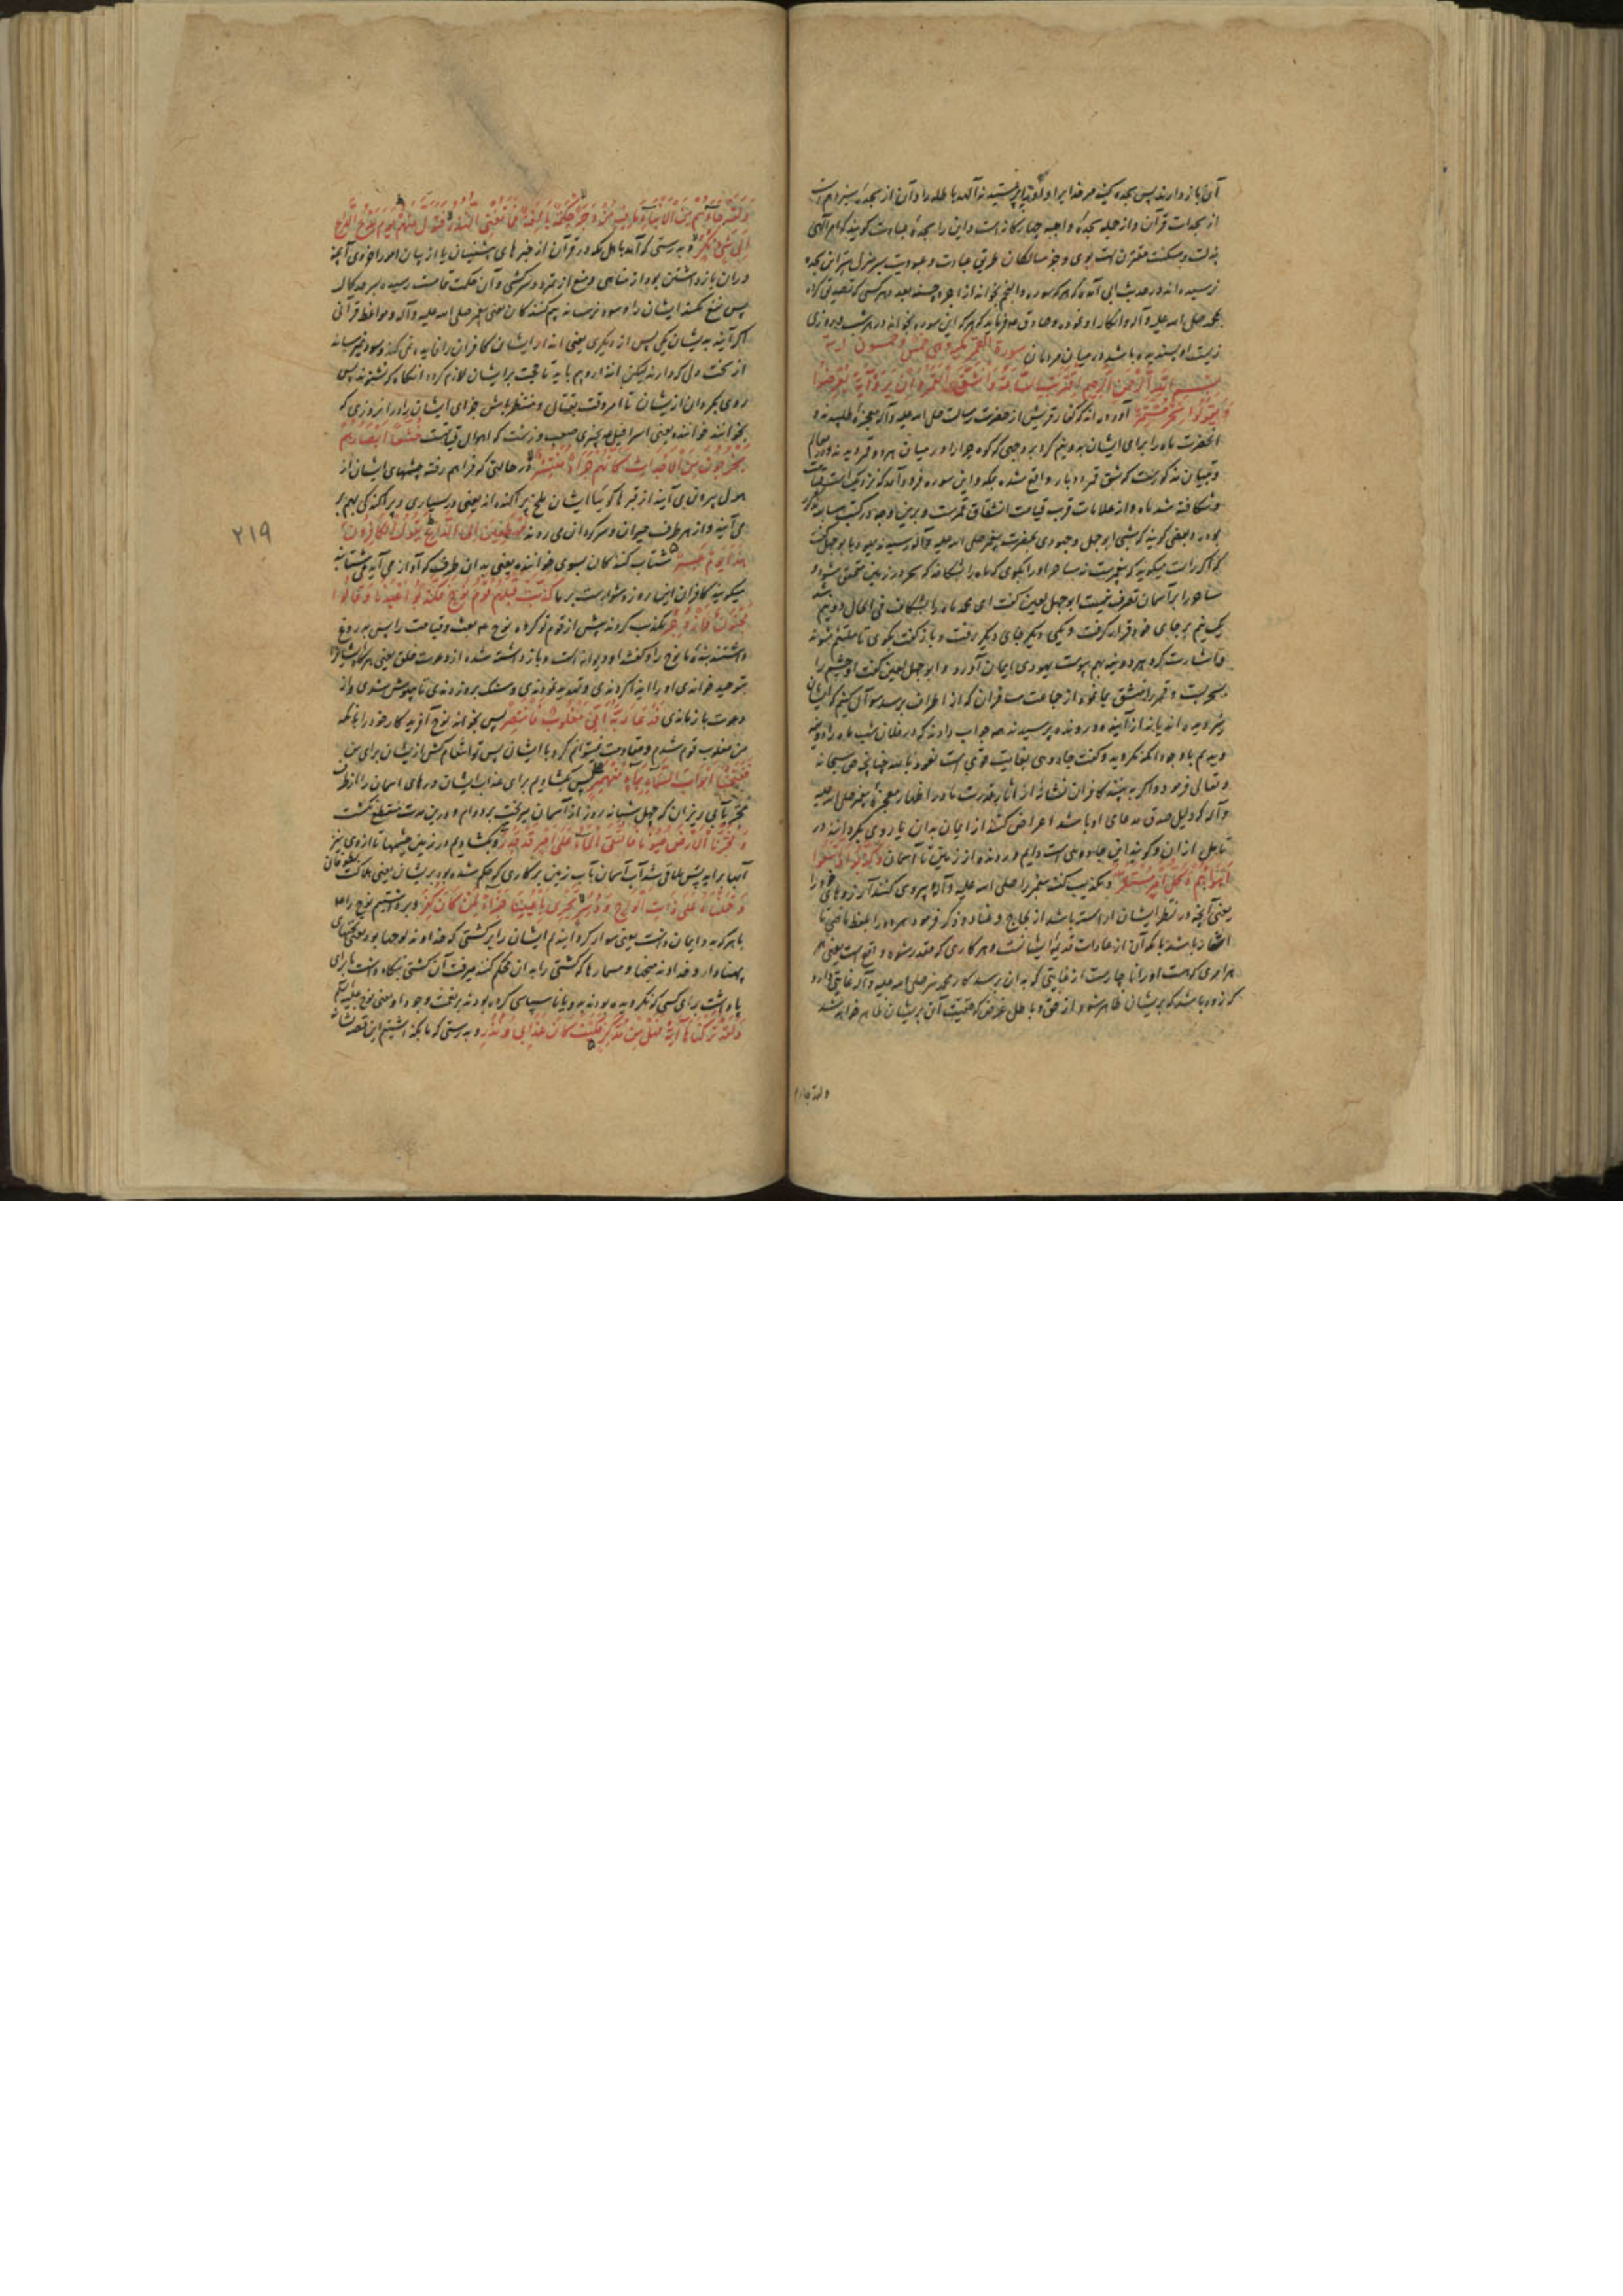 آن باز دارند پس سجده کنید مر خدایرا و او را بپرستید نه آلهه باطله را و آن از سجده
از سجدات قرآن و از جمله سجدهٔ واجبه چهارگانه است و این را سجدهٔ عبادت گویند که امر آلهی
بذلت و مسکنت مقترنست بوی و جز سالکان طریق عبادت و عبودیت بسر منزل سر این سجده
نرسیده‌اند در حدیث ابی آمده که هر که سوره والنجم بخواند از اجر ده چسنه بعدد هر کسی که تصدیق کرده
بمحمد صلی الله علیه وآله و انکار او نموده و صادق فرماید که هر که این سوره بخواند در هر شب و روزی
زیست او پسندیده باشد در میان مردمان سورة القمر مکیة وهی خمس وخمسون آیة
بسم الله الرحمن الرحیم اقتربت الساعة وانشق القمر وان یروا آیة یعرضوا
ویقولوا سحر مستمر آورده‌اند که کفار قریش از حضرت رسالت صلی الله علیه وآله معجزه طلبیدند و
آنحضرت ماه را برای ایشان بدو نیم کرد بر وجهی که کوه حرا را در میان هر دو قمر دیدند
و شکافته شد ماه و از علامات قرب قیامت انشقاق قمرست و برین وجه در کتب سابقه
بود و بعضی گویند که شبی ابوجهل و جهودی بحضرت پیغمبر صلی الله علیه وآله رسیدند
ساحر را بر آسمان تصرف نیست ابوجهل لعین گفت ای محمد ماه را بشکاف فی الحال دو نیم شد
یک نیم بر جای خود قرار گرفت و یکی دیگر جای دیگر رفت و باز گفت بگوی تا ملتئم شود
اشارت کرد هر دو نیمه بهم پیوست یهودی ایمان آورد و ابوجهل لعین گفت او چشم ما را
بسحر بست و قمر را منشق بما نمود از جماعت مسافران که از اطراف برسند سوآل کنیم که ایشان
دیدیم با وجود آنکه نگروید و گفت جادویی بغایت قوی است نعوذ بالله چنانچه حق سبحانه
و تعالی فرمود و اگر به بینند کافران نشانهٔ از آثار قدرت ما در اظهار معجزهٔ پیغمبر صلی الله علیه
وآله که دلیل صدق مدعای او باشد اعراض کنند از ایمان بدان یا روی بگردانند از
تامل در آن و گویند این جادویی است دایم و رونده از زمین تا آسمان وکذبوا واتبعوا
اهوائهم وکل امر مستقر و تکذیب کنند پیغمبر را صلی الله علیه وآله و پیروی کنند آرزوهای خود را
یعنی آنچه در نظر ایشان آراسته باشد از لجاج و عناد و ذکر فرمود هر دو را بلفظ ماضی تا
اشعار باشد بآنکه آن از عادات قدیمه ایشانست و هر کاری که مقدر شود واقع است یعنی
هر امری که هست او را ناچارست از غایتی که بدان برسد کار محمد نیز صلی الله علیه وآله غایتی دارد
که زود باشد که بر ایشان ظاهر شود از حق و باطل غرض که حقیقت آن بر ایشان ظاهر خواهد شد
ولقد جاءهم
ولقد جاءهم من الانباء ما فیه مزدجر حکمة بالغة فما تغنی النذر فتول عنهم یوم یدع الداع
الی شیء نکر و بدرستی که آمد باهل مکه در قرآن از خبرهای پیشینیان یا از بیان امور اخروی آنچه
در آن باز داشتن بود از مناهی و منع از تمرد و سرکشی و آن حکمت تمامست رسیده بسر حد کمال
پس نفع نکند ایشان را و سود نرساند بیم کنندگان یعنی پیغمبر صلی الله علیه وآله و مواعظ قرآنی
اگر آیند بدیشان یکی پس از دیگری یعنی انذار ایشان کافران را فایده نمی کند و سود نمیرساند
از سخت دلی که دارند لیکن انذار و بیم باید تا حجت بر ایشان لازم گردد از آنکه چو نشنوند پس
روی بگردان از یشان تا امر وقت بقتال و منتظر باش جزای ایشان را در روزی که
بخواند خواننده یعنی اسرافیل بچیزی صعب و زشت که اهوال قیامتست خشعا ابصارهم
یخرجون من الاجداث کانهم جراد منتشر در حالتی که فراهم رفته چشمهای ایشان از
هول بیرون می آیند از قبرها گوییا ایشان ملخ پراکنده‌اند یعنی در بسیاری و پراکندگی بهم بر
می آیند و از هر طرف حیران و سرگردان می روند مهطعین الی الداع یقول الکافرون
هذا یوم عسر شتاب کنندگان بسوی خواننده یعنی بدان طرف که آواز می آید می شتابند
میگویند کافران این روز دشوارست بر ما کذبت قبلهم قوم نوح فکذبوا عبدنا وقالوا
مجنون وازدجر تکذیب کردند پیش از قوم تو گروه نوح بعث و قیامت را پس دروغ
داشتند بندهٔ ما نوح را و گفتند او دیوانه است و باز داشته شده از دعوت خلق یعنی هرگاه ایشانرا
بتوحید خواندی او را ایذا کردندی و تهدید نمودندی و سنگ برو زدندی تا بیهوش شدی و از
دعوت باز ماندی فدعا ربه انی مغلوب فانتصر پس بخواند نوح آفریدگار خود را بآنکه
من مغلوب قوم شدم و مقاومت نمیتوانم کرد با ایشان پس تو انتقام کش از یشان برای من
ففتحنا ابواب السماء بماء منهمر پس بگشادیم برای عذاب ایشان درهای آسمان را از طرف
مجره بآبی ریزان که چهل شبانه روز از آسمان میریخت بر دوام و درین مدت منقطع نگشت
وفجرنا الارض عیونا فالتقی الماء علی امر قد قدر و بگشادیم در زمین چشمها تا از وی نیز
آب برآید پس ملاقی شد آب آسمان بآب زمین بر کاری که حکم شده بود بر یشان یعنی هلاکت بطوفان
وحملناه علی ذات الواح ودسر تجری باعیننا جزاء لمن کان کفر و بر داشتیم نوح را
با هر که بدو ایمان داشت یعنی سوار کردانیدیم ایشان را بر کشتی که خداوند لوحها بود یعنی تختهای
پهناور و خداوند میخها و مسمارها که کشتی را بدان محکم کنند میرفت آن کشتی بنگاه داشت ما برای
پاداشت برای کسی که نگرویده بودند بدو یا ناسپاسی کرده بودند بر نعمت وجود او یعنی نوح علیه السلام
ولقد ترکناها آیة فهل من مدکر فکیف کان عذابی ونذر و بدرستی که ما بگذاشتیم این قصه را نشانهٔ
۲۱۹